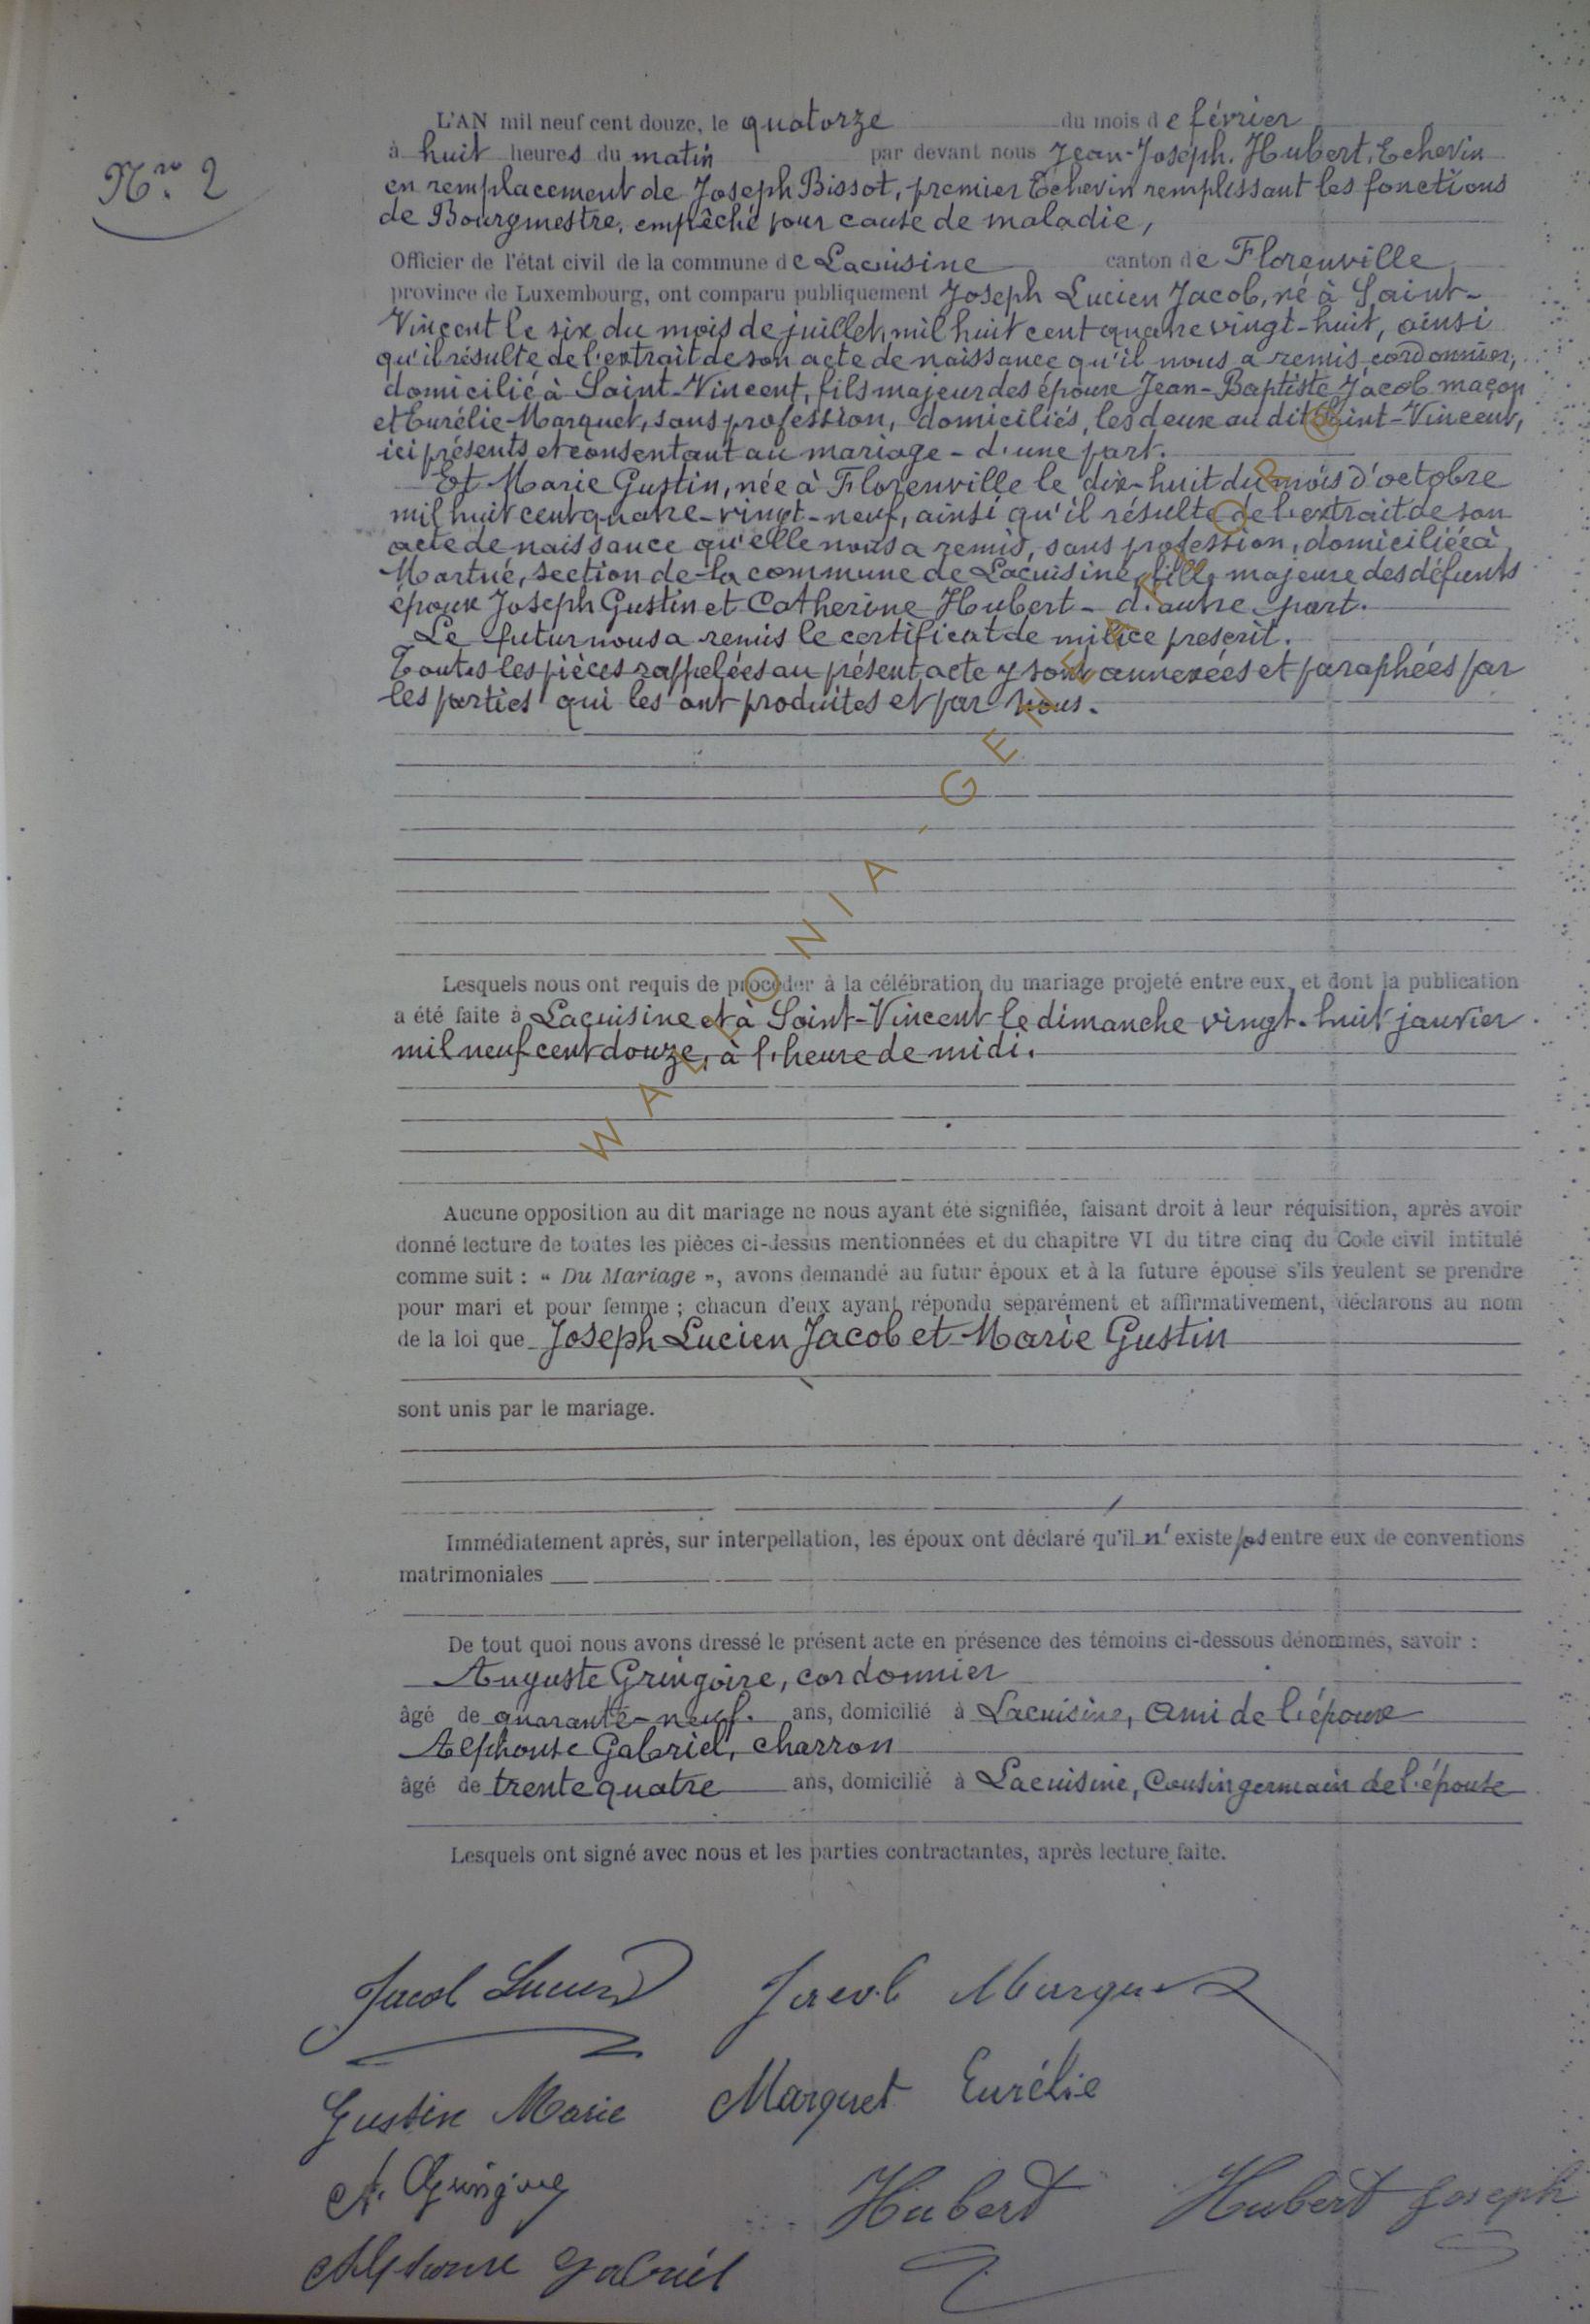 N.ro 2
L'AN mil neuf cent douze, le quatorze du mois de février
à huit heures du matin par devant nous Jean-Joseph Hubert, Echevin
en remplacement de Joseph Bissot, premier Echevin remplissant les fonctions
de Bourgmestre, empêché pour cause de maladie,
Officier de l'état civil de la commune de Lacuisine canton de Florenville,
province de Luxembourg, ont comparu publiquement Joseph Lucien Jacob, né à Saint-
Vincent le six du mois de juillet mil huit cent quatre vingt-huit, ainsi
qu'il résulte de l'extrait de son acte de naissance qu'il nous a remis, cordonnier,
domicilié à Saint-Vincent, fils majeur des époux Jean-Baptiste Jacob, maçon
et Eurélie Marquet, sans profession, domiciliés, les deux au dit Saint-Vincent,
ici présents et consentant au mariage - d'une part.
Et Marie Gustin, née à Florenville le dix-huit du mois d'octobre
mil huit cent quatre-vingt-neuf, ainsi qu'il résulte de l'extrait de son
acte de naissance qu'elle nous a remis, sans profession, domiciliée à
Martué, section de la commune de Lacuisine, fille majeure des défunts
époux Joseph Gustin et Catherine Hubert - d'autre part.
Le futur nous a remis le certificat de milice prescrit.
Toutes les pièces rappelées au présent acte y sont annexées et paraphées par
les parties qui les ont produites et par nous.
Lesquels nous ont requis de procéder à la célébration du mariage projeté entre eux, et dont la publication
a été faite à Lacuisine et à Saint-Vincent le dimanche vingt-huit janvier
mil neuf cent douze, à l'heure de midi.
WALLONIA-GENEALOGO
Aucune opposition au dit mariage ne nous ayant été signifiée, faisant droit à leur réquisition, après avoir
donné lecture de toutes les pièces ci-dessus mentionnées et du chapitre VI du titre cinq du Code civil intitulé
comme suit : « Du Mariage », avons demandé au futur époux et à la future épouse s'ils veulent se prendre
pour mari et pour femme ; chacun d'eux ayant répondu séparément et affirmativement, déclarons au nom
de la loi que Joseph Lucien Jacob et Marie Gustin
sont unis par le mariage.
Immédiatement après, sur interpellation, les époux ont déclaré qu'il n'existe pas entre eux de conventions
matrimoniales
De tout quoi nous avons dressé le présent acte en présence des témoins ci-dessous dénommés, savoir :
Auguste Gringoire, cordonnier
âgé de quarante-neuf. ans, domicilié à Lacuisine, ami de l'époux
Alphonse Gabriel, charron
âgé de trente quatre ans, domicilié à Lacuisine, Cousin germain de l'épouse
Lesquels ont signé avec nous et les parties contractantes, après lecture faite.
Jacob Lucien Jacob Marquet
Gustin Marie Marquet Eurélie
A. Gringoire Hubert Hubert Joseph
Alphonse Gabriel